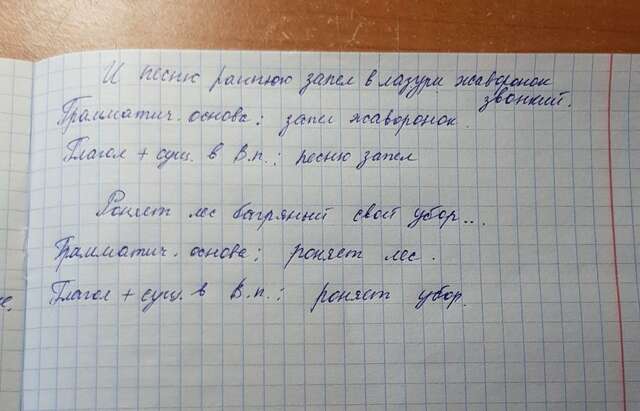 И песню раннюю запел в лазури жаворонок
звонкий.
Грамматич. основа: запел жаворонок.
Глагол + сущ. в В.п.: песню запел
Роняет лес багряный свой убор...
Грамматич. основа: роняет лес.
Глагол + сущ. в В.п.: роняет убор.